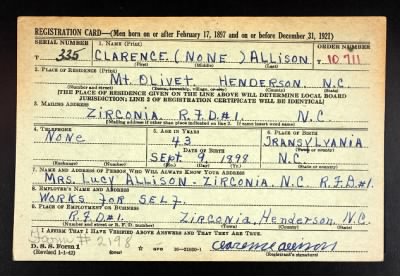 REGISTRATION CARD—(Men born on or after February 17, 1897 and on or before December 31, 1921)
SERIAL NUMBER 1. NAME (Print) ORDER NUMBER
335 CLARENCE (NONE) ALLISON 10711
(First) (Middle) (Last)
2. PLACE OF RESIDENCE (Print)
Mt. OLIVET HENDERSON N.C.
(Number and street) (Town, township, village, or city) (County) (State)
[THE PLACE OF RESIDENCE GIVEN ON THE LINE ABOVE WILL DETERMINE LOCAL BOARD
JURISDICTION; LINE 2 OF REGISTRATION CERTIFICATE WILL BE IDENTICAL]
3. MAILING ADDRESS
ZIRCONIA. R.F.D#1. N.C.
[Mailing address if other than place indicated on line 2. If same insert word same]
4. TELEPHONE 5. AGE IN YEARS 6. PLACE OF BIRTH
NONE 43 TRANSYLVANIA
DATE OF BIRTH
Sept 9, 1898 N.C.
(Exchange) (Number) (Mo.) (Day) (Yr.) (State or country)
7. NAME AND ADDRESS OF PERSON WHO WILL ALWAYS KNOW YOUR ADDRESS
MRS. LUCY ALLISON - ZIRCONIA. N.C. R.F.D#1.
8. EMPLOYER'S NAME AND ADDRESS
WORKS FOR SELF.
9. PLACE OF EMPLOYMENT OR BUSINESS
R.F.D#1. Zirconia, Henderson, N.C.
(Number and street or R. F. D. number) (Town) (County) (State)
I AFFIRM THAT I HAVE VERIFIED ABOVE ANSWERS AND THAT THEY ARE TRUE.
# 2198
D. S. S. Form 1
(Revised 1-1-42) GPO 16—21630-1 Clarence Allison
(Registrant's signature)